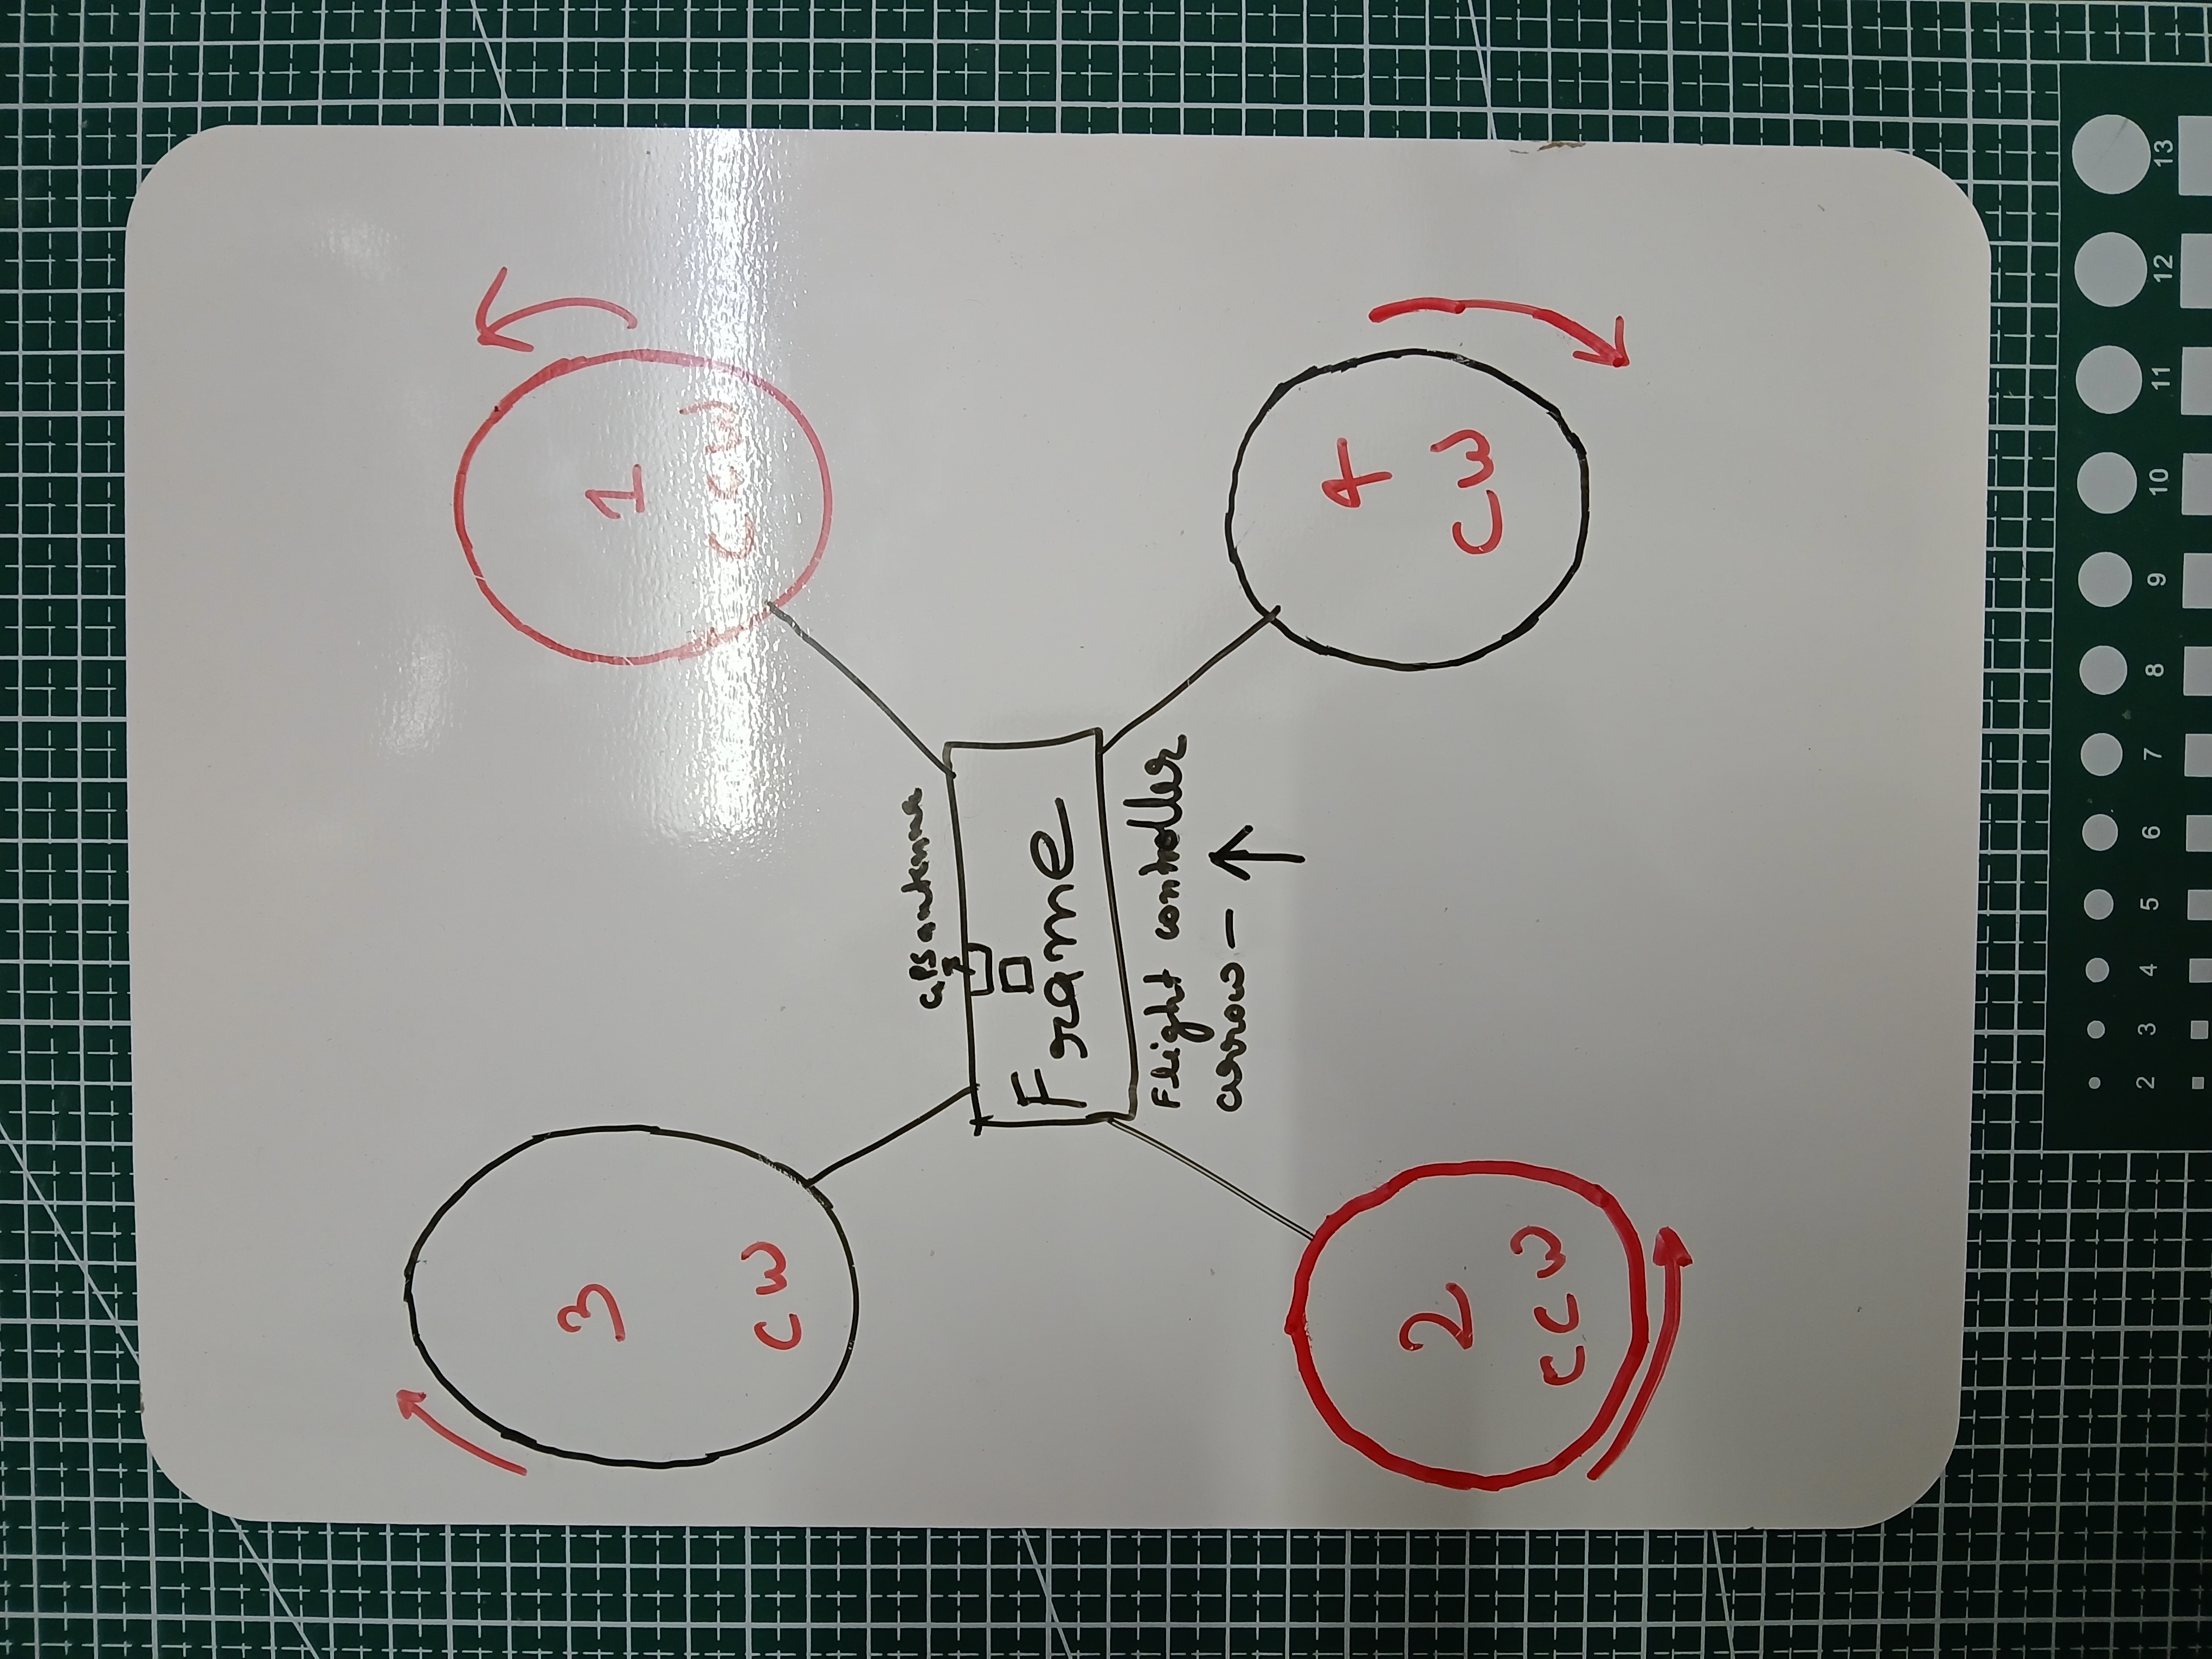 3
CW
1
CCW
GPS antenna
Frame
Flight controller
arrow –
2
CCW
4
CW
2 3 4 5 6 7 8 9 10 11 12 13